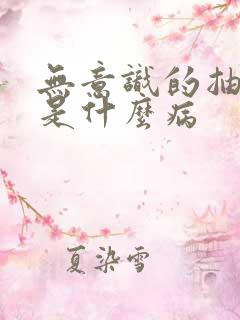 無意識的抽
是什麼病
夏染雪